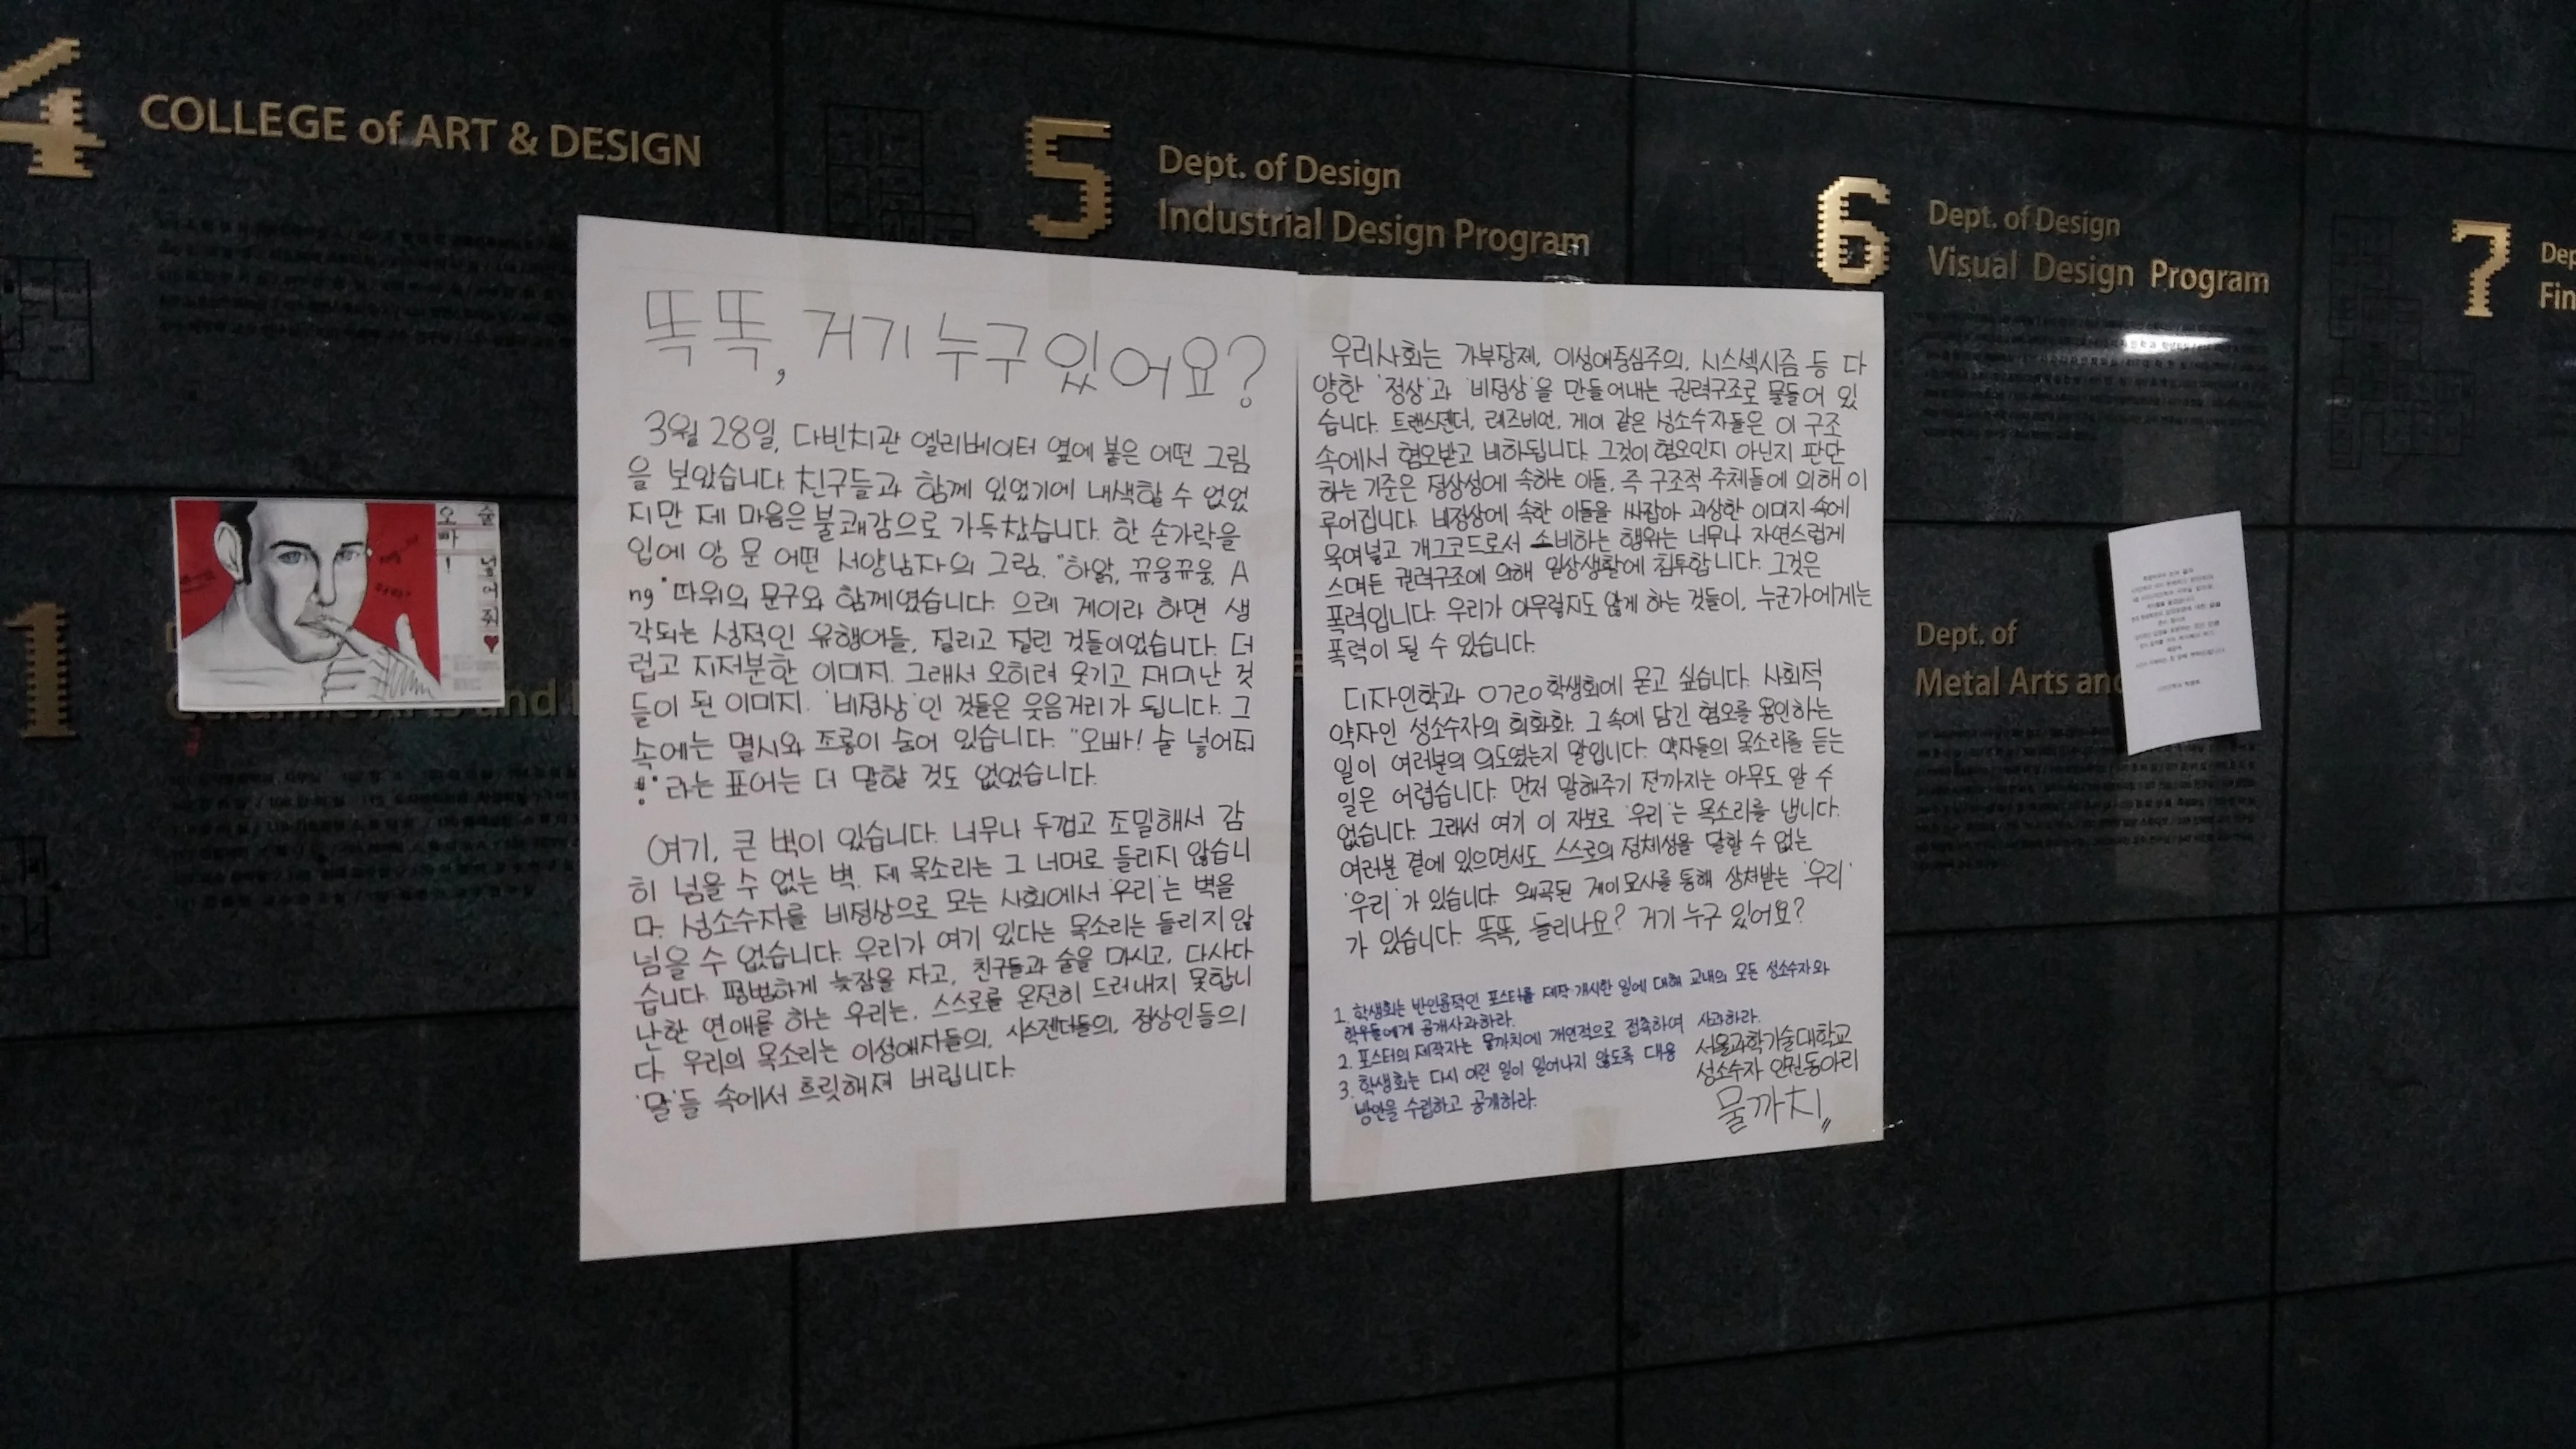 4
COLLEGE of ART & DESIGN
5
Dept. of Design
Industrial Design Program
6
Dept. of Design
Visual Design Program
7
1
Dept. of
Metal Arts and
오빠!
술 넣어줘♥
똑똑, 거기 누구 있어요?
3월 28일, 다빈치관 엘리베이터 옆에 붙은 어떤 그림
을 보았습니다. 친구들과 함께 있었기에 내색할 수 없었
지만 제 마음은 불쾌감으로 가득 찼습니다. 한 손가락을
입에 앙 문 어떤 서양남자의 그림. "하앍, 뀨웅뀨웅, A
ng" 따위의 문구와 함께였습니다. 으레 게이라 하면 생
각되는 성적인 유행어들, 질리고 질린 것들이었습니다. 더
럽고 지저분한 이미지. 그래서 오히려 웃기고 재미난 것
들이 된 이미지. '비정상'인 것들은 웃음거리가 됩니다. 그
속에는 멸시와 조롱이 숨어 있습니다. "오빠! 술 넣어줘
!"라는 표어는 더 말할 것도 없었습니다.
여기, 큰 벽이 있습니다. 너무나 두껍고 조밀해서 감
히 넘을 수 없는 벽. 제 목소리는 그 너머로 들리지 않습니
다. 성소수자를 비정상으로 모는 사회에서 '우리'는 벽을
넘을 수 없습니다. 우리가 여기 있다는 목소리는 들리지 않
습니다. 평범하게 늦잠을 자고, 친구들과 술을 마시고, 다사다
난한 연애를 하는 우리는, 스스로를 온전히 드러내지 못합니
다. 우리의 목소리는 이성애자들의, 시스젠더들의, 정상인들의
'말'들 속에서 흐릿해져 버립니다.
우리사회는 가부장제, 이성애중심주의, 시스섹시즘 등 다
양한 '정상'과 '비정상'을 만들어내는 권력구조로 물들어 있
습니다. 트랜스젠더, 레즈비언, 게이 같은 성소수자들은 이 구조
속에서 혐오받고 비하됩니다. 그것이 혐오인지 아닌지 판단
하는 기준은 정상성에 속하는 이들, 즉 구조적 주체들에 의해 이
루어집니다. 비정상에 속한 이들을 싸잡아 괴상한 이미지 속에
욱여넣고 개그코드로서 소비하는 행위는 너무나 자연스럽게
스며든 권력구조에 의해 일상생활에 침투합니다. 그것은
폭력입니다. 우리가 아무렇지도 않게 하는 것들이, 누군가에게는
폭력이 될 수 있습니다.
디자인학과 학생회에 묻고 싶습니다. 사회적
약자인 성소수자의 희화화, 그 속에 담긴 혐오를 용인하는
일이 여러분의 의도였는지 말입니다. 약자들의 목소리를 듣는
일은 어렵습니다. 먼저 말해주기 전까지는 아무도 알 수
없습니다. 그래서 여기 이 자보로 '우리'는 목소리를 냅니다.
여러분 곁에 있으면서도 스스로의 정체성을 말할 수 없는
'우리'가 있습니다. 왜곡된 게이묘사를 통해 상처받는 '우리'
가 있습니다. 똑똑, 들리나요? 거기 누구 있어요?
1. 학생회는 반인륜적인 포스터를 제작·개시한 일에 대해 교내의 모든 성소수자와
학우들에게 공개사과하라.
2. 포스터의 제작자는 물까치에 개인적으로 접촉하여 사과하라.
3. 학생회는 다시 이런 일이 일어나지 않도록 대응
방안을 수립하고 공개하라.
서울과학기술대학교
성소수자 인권동아리
물까치